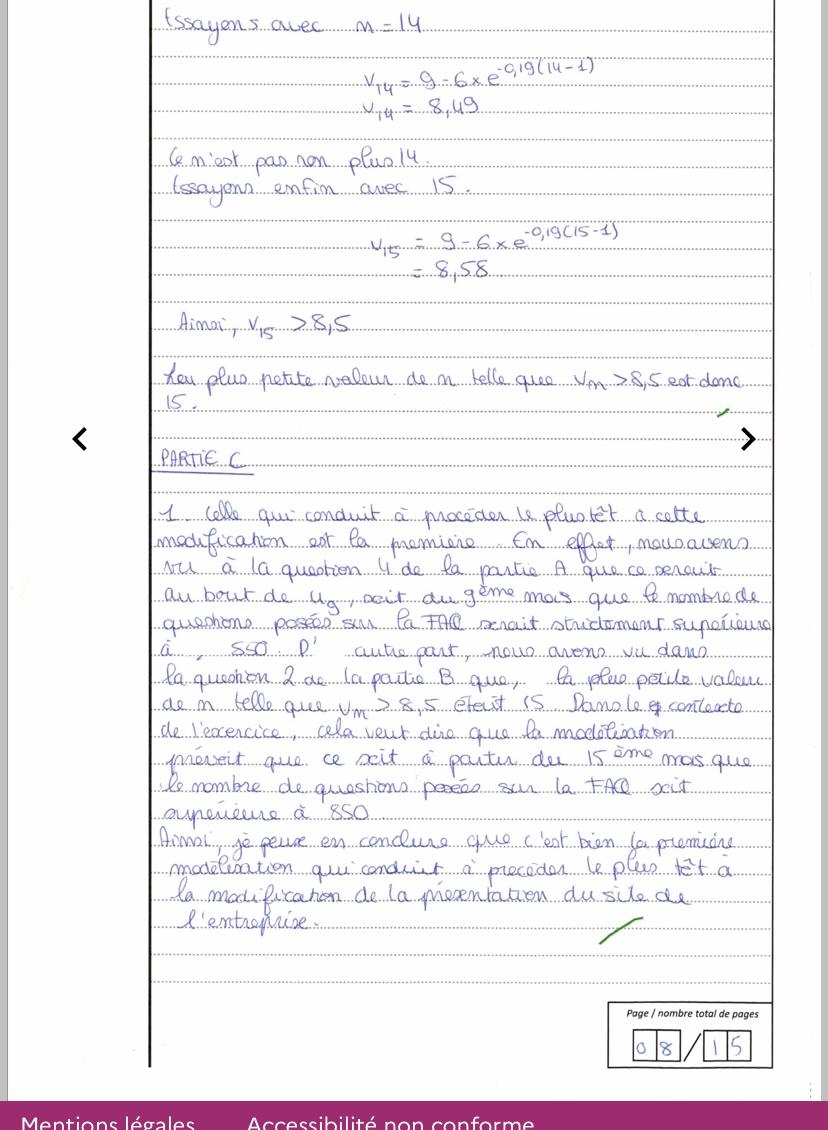 Essayons avec n = 14
v14 = 9 - 6 x e^-0,19(14-1)
v14 = 8,49
Ce n'est pas non plus 14.
Essayons enfin avec 15.
v15 = 9 - 6 x e^-0,19(15-1)
= 8,58
Ainsi, v15 > 8,5
Leu plus petite valeur de n telle que vn > 8,5 est donc
15.
PARTIE C
1. Celle qui conduit à procéder le plus tôt à cette
modification est la première. En effet, nous avons
vu à la question 4 de la partie A que ce serait
au bout de u9, soit au 9ème mois que le nombre de
questions posées sur la FAQ serait strictement supérieure
à, 850. D' autre part, nous avons vu dans
la question 2 de la partie B que, la plus petite valeur
de n telle que vn > 8,5 était 15. Dans le contexte
de l'excercice, cela veut dire que la modélisation
prévoit que ce soit à partir du 15ème mois que
le nombre de questions posées sur la FAQ soit
supérieure à 850
Ainsi, je peux en conclure que c'est bien la première
modélisation qui conduit à procéder le plus tôt à
la modification de la présentation du site de
l'entreprise.
Page / nombre total de pages
08/15
Mentions légales Accessibilité non conforme